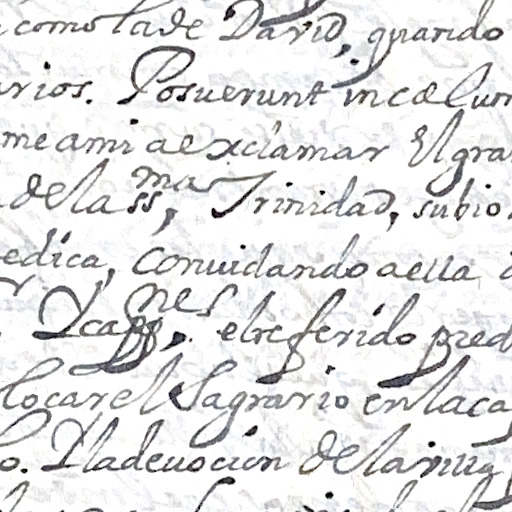 como la de David, quando
rios. Posuerunt in cœlum
me a mi a exclamar El gra
de la ss.ma Trinidad, subio
edica, convidando a ella
Y capp.nes el referido pred
locar el Sagrario en la ca
o. Y la devocion de la villa